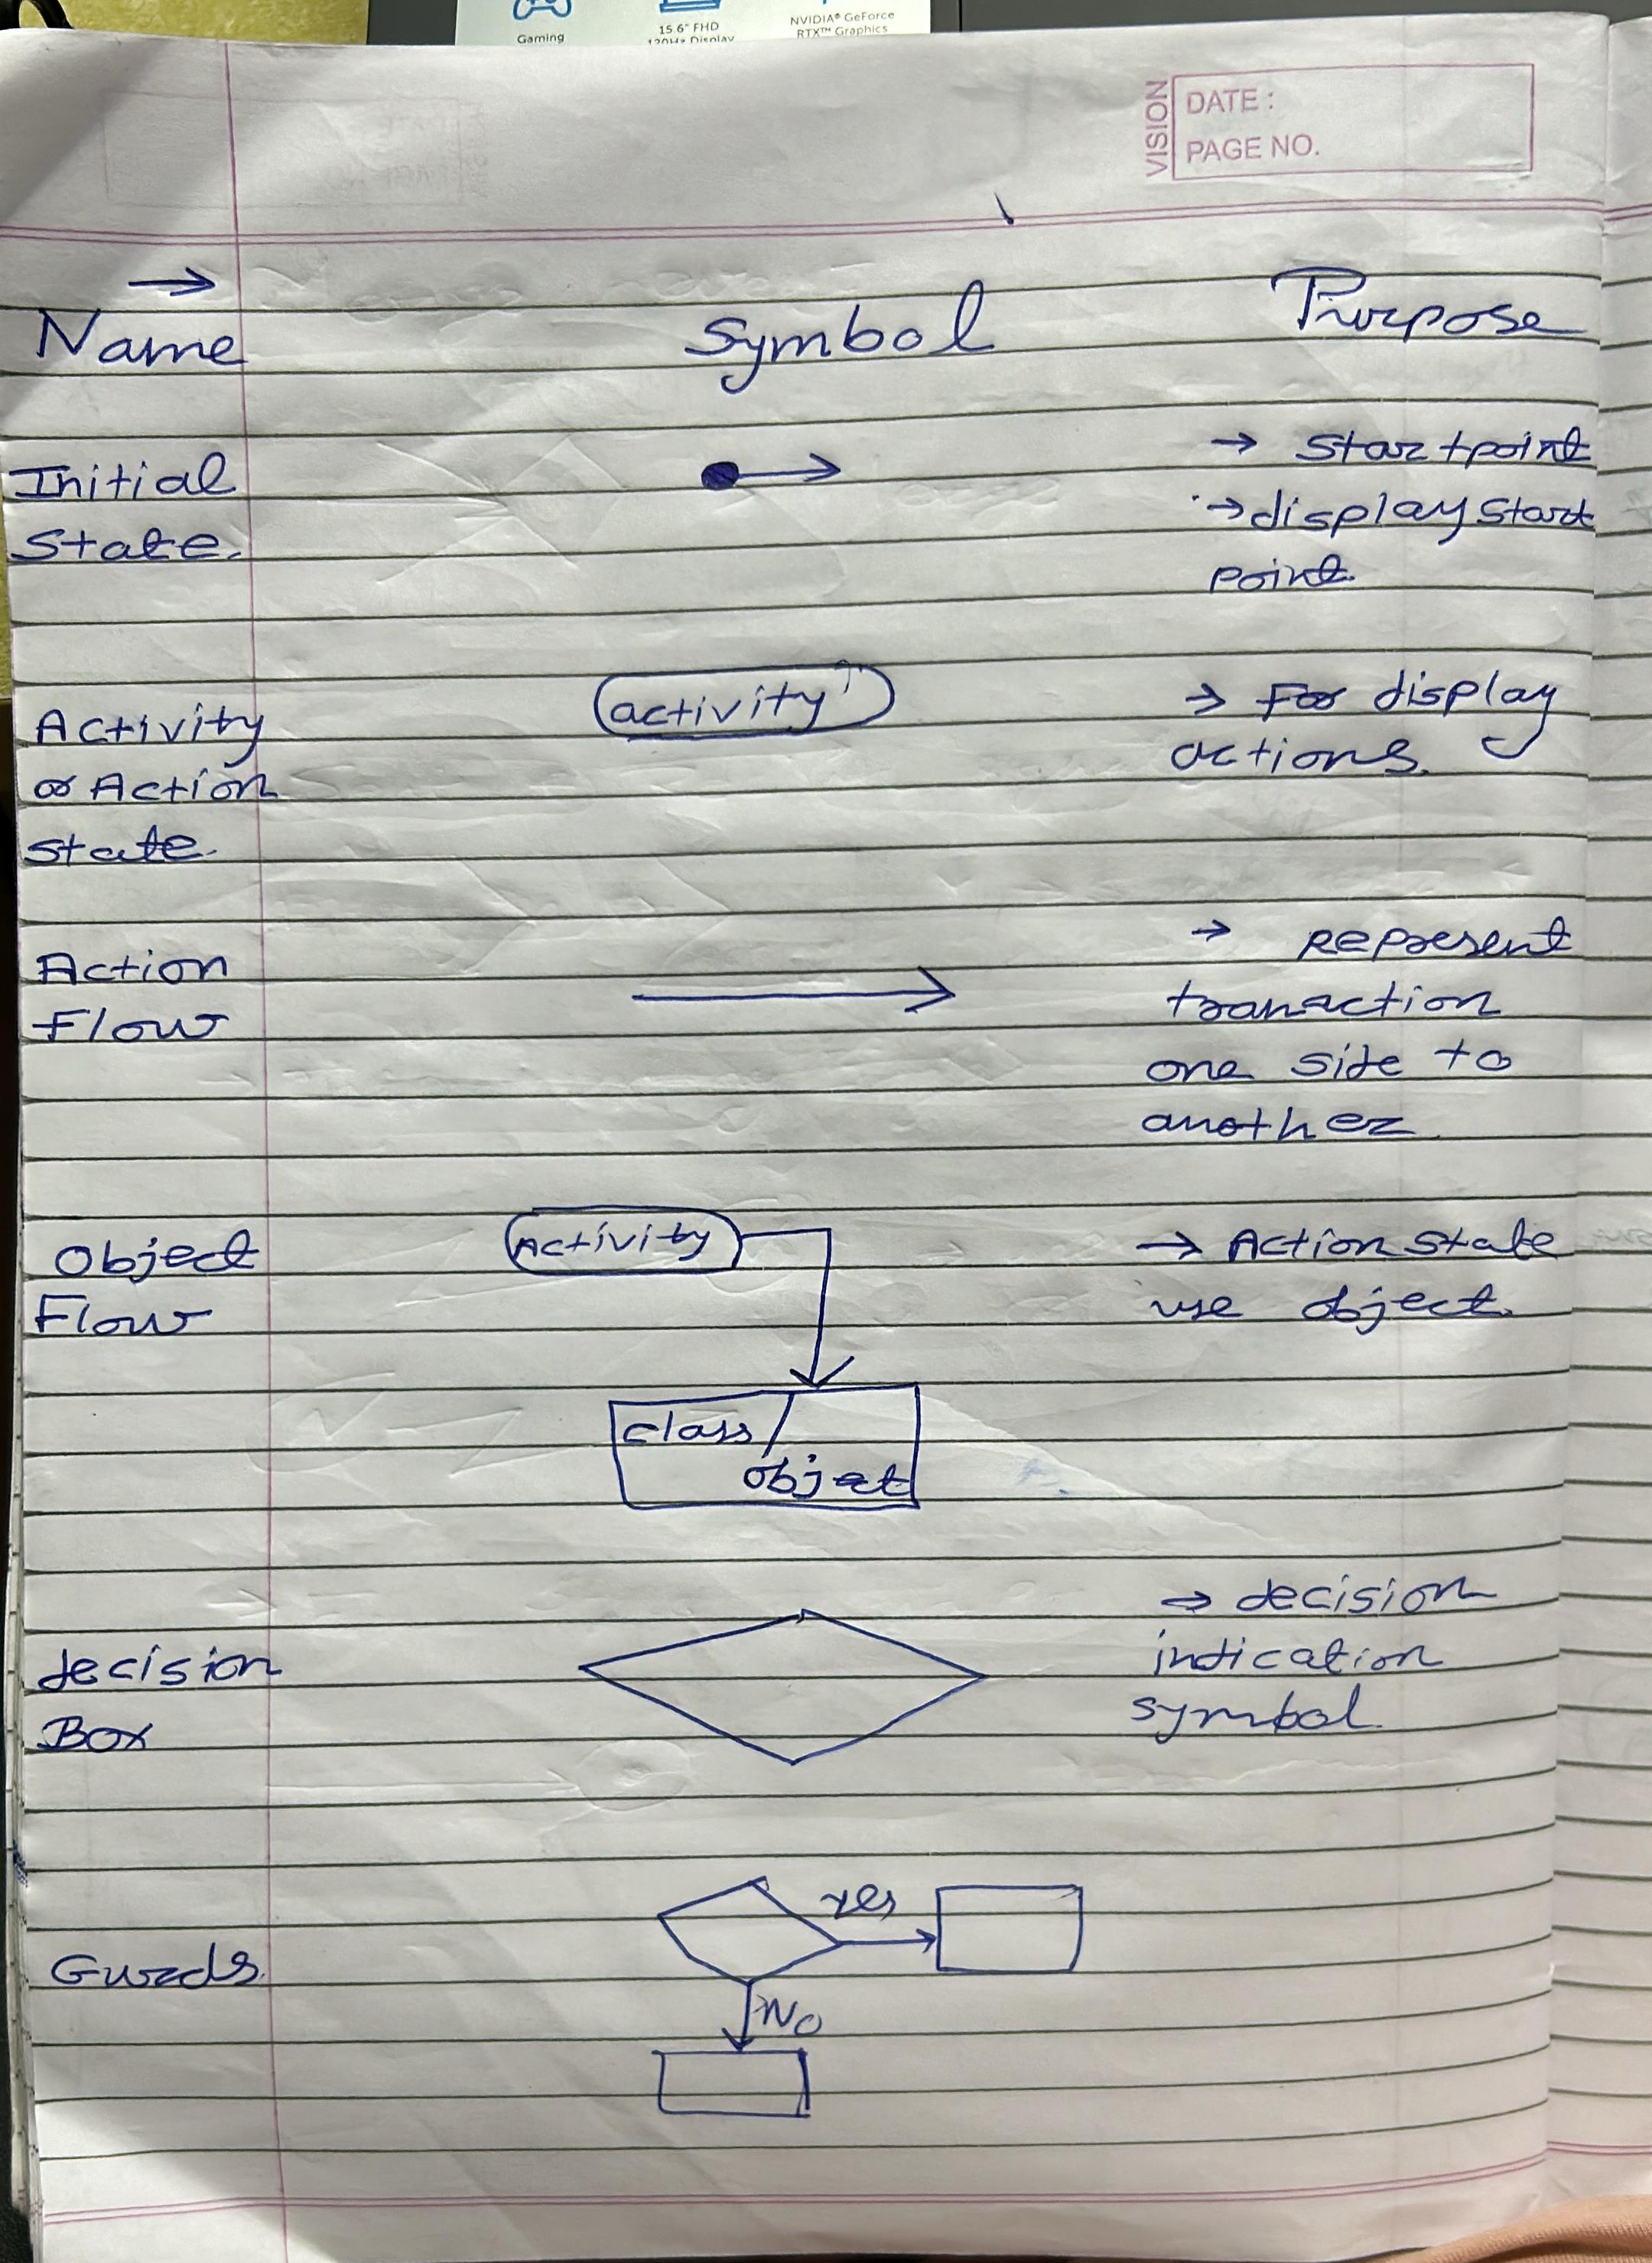 Gaming
15.6" FHD
120Hz Display
NVIDIA® GeForce
RTX™ Graphics
VISION
DATE :
PAGE NO.
→
Name Symbol Purpose
Initial
State.
→ Start point
→ display start
point.
Activity
or Action
state.
activity
→ For display
actions.
Action
Flow
→ Represent
tranaction
one side to
another
Object
Flow
Activity
class/
object
→ Action state
use object.
decision
Box
→ decision
indication
symbol.
Gurds.
yes
No